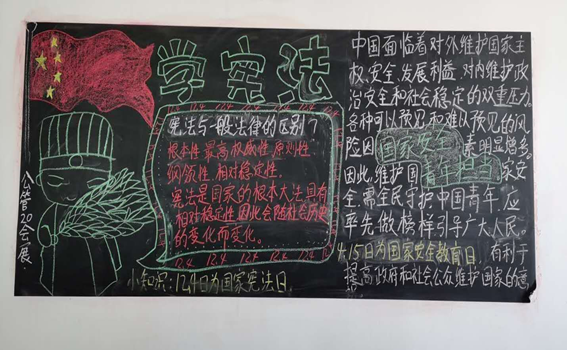 学宪法
宪法与一般法律的区别?
根本性.最高权威性.原则性.
纲领性.相对稳定性.
宪法是国家的根本大法具有
相对稳定性因此会随社会历史
的变化而变化。
小知识:12.4日为国家宪法日.
公管20会展.
中国面临着对外维护国家主
权.安全.发展利益.对内维护政
治安全和社会稳定的双重压力
各种可以预见和难以预见的风
险因素明显增多.
国家安全
青年担当
因此,维护国家安
全.需全民守护中国青年.应
率先做榜样引导广大人民。
4月15日为国家安全教育日.有利于
提高政府和社会公众维护国家的意